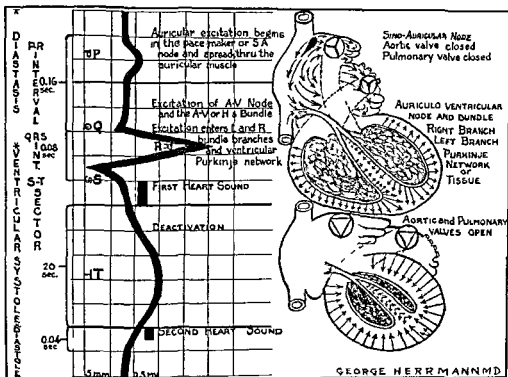 *
DIASTASIS
*VENTRICULAR SYSTOLE
DIASTOLE
PR
INTERVAL
QRS
INT.
S-T
SECTOR
0.16
sec.
0.08
sec
20
sec.
0.04
sec
P
Q
R
S
T
Auricular excitation begins
in the pace maker or S A
node and spreads thru the
auricular muscle
Excitation of A-V Node
and the A-V or H s Bundle
Excitation enters L and R
bundle branches
and ventricular
Purkinje network
FIRST HEART SOUND
DEACTIVATION
SECOND HEART SOUND
5mm
SINO-AURICULAR NODE
Aortic valve closed
Pulmonary valve closed
AURICULO VENTRICULAR
NODE AND BUNDLE
RIGHT BRANCH
LEFT BRANCH
PURKINJE
NETWORK
OF
TISSUE
AORTIC and PULMONARY
VALVES OPEN
GEORGE HERRMANN MD